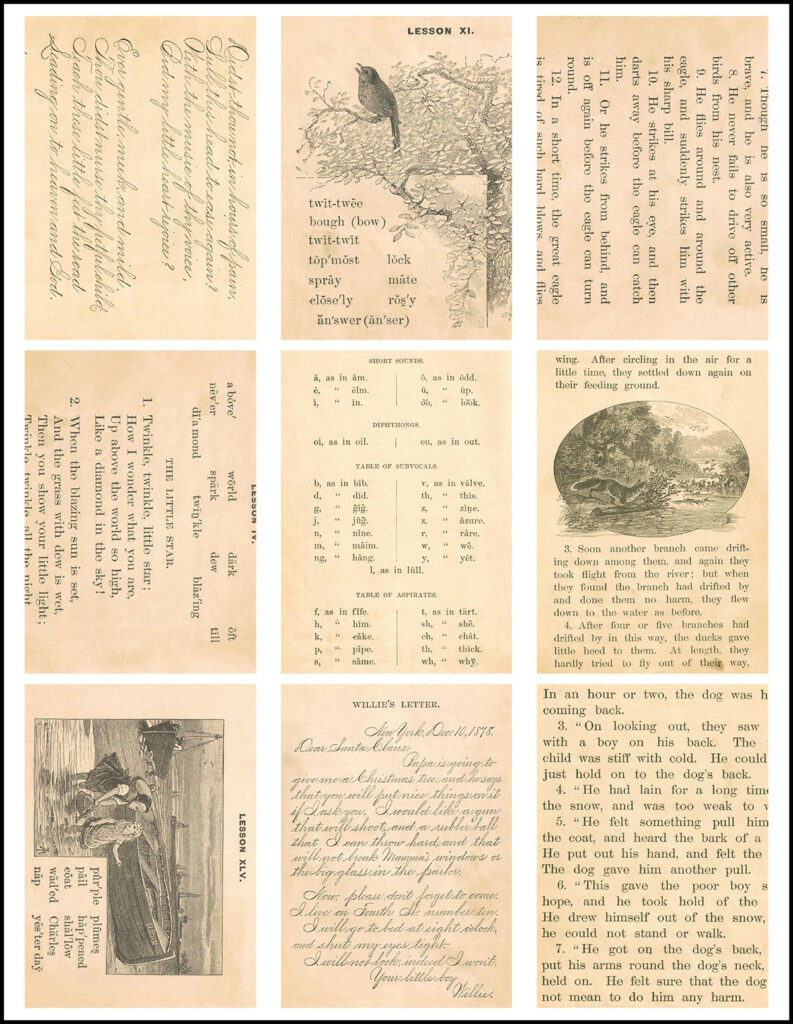 Didst thou not, in hours of pain,
Lull this head to ease again?
With the music of thy voice,
Bid my little heart rejoice?
Ever gentle, meek and mild,
Thou didst nurse thy fretful child.
Teach these little feet the road
Leading on to heaven and God.
LESSON XI.
twĭt-twēe
bough (bow)
twĭt-twĭt
tŏp'mōst lŏck
sprāy māte
elōse'ly rōṣ'y
ăn'swer (ăn'ser)
7. Though he is so small, he is
brave, and he is also very active.
8. He never fails to drive off other
birds from his nest.
9. He flies around and around the
eagle, and suddenly strikes him with
his sharp bill.
10. He strikes at his eye, and then
darts away before the eagle can catch
him.
11. Or he strikes from behind, and
is off again before the eagle can turn
round.
12. In a short time, the great eagle
is tired of such hard blows, and flies
LESSON IV.
a bóve' wõrld därk ŏft
nĕv'er spärk dew tĭll
dī'a mond twĭṉ'kle blāz'ing
THE LITTLE STAR.
1. Twinkle, twinkle, little star;
How I wonder what you are,
Up above the world so high,
Like a diamond in the sky!
2. When the blazing sun is set,
And the grass with dew is wet,
Then you show your little light;
Twinkle, twinkle, all the night.
SHORT SOUNDS.
ă, as in ăm. ŏ, as in ŏdd.
ĕ, " ĕlm. ŭ, " ŭp.
ĭ, " ĭn. o͝o, " lo͝ok.
DIPHTHONGS.
oi, as in oil. ou, as in out.
TABLE OF SUBVOCALS
b, as in bĭb. v, as in vălve.
d, " dĭd. th, " thĭs.
g, " ḡĭḡ. z, " zĭnc.
j, " jŭg. z, " āzure.
n, " nīne. r, " râre.
m, " māim. w, " wē.
ng, " hăng. y, " yĕt.
l, as in lŭll.
TABLE OF ASPIRATES
f, as in fīfe. t, as in tärt.
h, " hĭm. sh, " shē.
k, " eāke. ch, " chăt.
p, " pīpe. th, " thĭck.
s, " sāme. wh, " whȳ.
wing. After circling in the air for a
little time, they settled down again on
their feeding ground.
3. Soon another branch came drift-
ing down among them, and again they
took flight from the river; but when
they found the branch had drifted by
and done them no harm, they flew
down to the water as before.
4. After four or five branches had
drifted by in this way, the ducks gave
little heed to them. At length, they
hardly tried to fly out of their way,
LESSON XLV.
pûr'ple plūmeṣ
pāil hăp'pened
eōat shăl'lōw
wād'ed Chärleṣ
năp yĕs'ter daȳ
WILLIE'S LETTER.
New York, Dec. 10, 1878.
Dear Santa Claus:
Papa is going to
give me a Christmas tree, and he says
that you will put nice things on it
if I ask you. I would like a gun
that will shoot, and a rubber ball
that I can throw hard, and that
will not break Mamma's windows or
the big glass in the parlor.
Now, please don't forget to come.
I live on Fourth St., number ten.
I will go to bed at eight o'clock,
and shut my eyes tight.
I will not look, indeed I won't.
Your little boy,
Willie.
In an hour or two, the dog was h
coming back.
3. "On looking out, they saw
with a boy on his back. The
child was stiff with cold. He could
just hold on to the dog's back.
4. "He had lain for a long time
the snow, and was too weak to w
5. "He felt something pull him
the coat, and heard the bark of a
He put out his hand, and felt the
The dog gave him another pull.
6. "This gave the poor boy s
hope, and he took hold of the
He drew himself out of the snow,
he could not stand or walk.
7. "He got on the dog's back,
put his arms round the dog's neck,
held on. He felt sure that the dog
not mean to do him any harm.